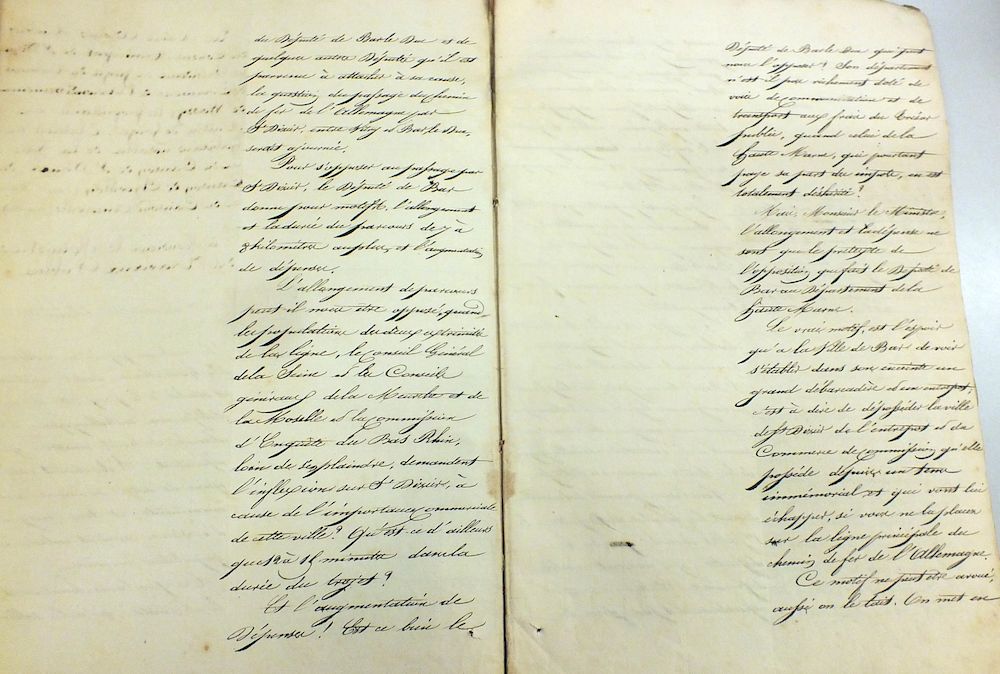 du Député de Bar le Duc et de
quelque autre Député qu'il est
parvenu à attacher à sa cause,
la question du passage du chemin
de fer de l'Allemagne par
St Dizier, entre Vitry et Bar le Duc,
serait ajournée.
Pour s'opposer au passage par
St Dizier, le Député de Bar
donne pour motifs, l'allongement
et la durée du parcours de 7 à
8 kilomètres au plus, et l'augmentation
de dépenses.
L'allongement de parcours
peut il nous être opposé, quand
les populations des deux extrémités
de la ligne, le Conseil Général
de la Seine et les Conseils
généraux de la Meurthe et de
la Moselle et la commission
d'Enquête du Bas Rhin,
loin de s'en plaindre, demandent
l'inflexion sur St Dizier, à
cause de l'importance commerciale
de cette ville ? Qu'est ce d'ailleurs
que 12 à 15 minutes dans la
durée du trajet ?
Et l'augmentation de
Dépenses ! Est ce bien le
Député de Bar le Duc qui peut
nous l'opposer ? Son département
n'est il pas richement doté de
voies de communication et de
transport aux frais du trésor
public, quand celui de la
haute Marne, qui pourtant
paye sa part des impôts, en est
totalement déshérité ?
Mais, Monsieur le Ministre,
l'allongement et la dépense ne
sont que le prétexte de
l'opposition que fait le Député de
Bar au Département de la
haute Marne.
Le vrai motif, est l'espoir
qu'a la Ville de Bar de voir
s'établir dans son enceinte un
grand débarcadère et un entrepôt,
c'est à dire de déposséder la ville
de St Dizier de l'entrepôt et du
Commerce de commission, qu'elle
possède depuis un tems
immémorial et qui vont lui
échapper, si vous ne la placez
sur la ligne principale du
chemin de fer de l'Allemagne.
Ce motif ne peut être avoué,
aussi on le tait. On met en